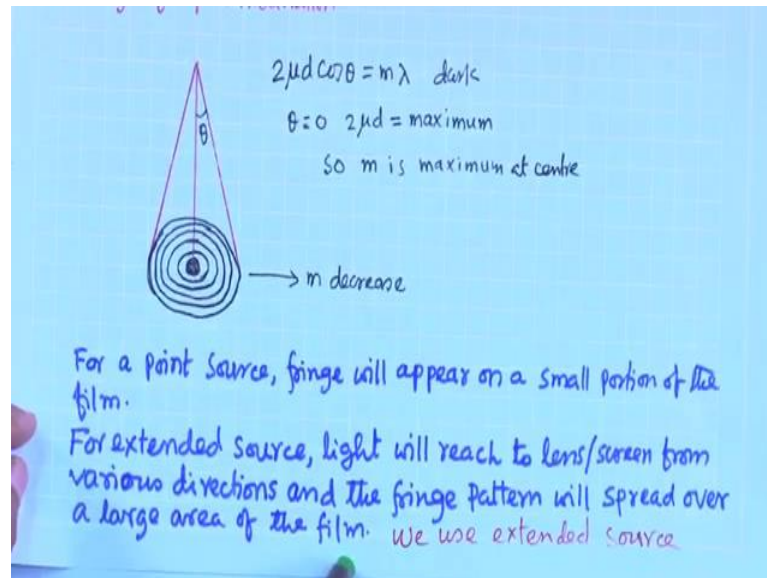 2μd cosθ = mλ dark
θ=0 2μd = maximum
So m is maximum at centre
θ
→ m decrease
For a point source, fringe will appear on a small portion of the
film.
For extended source, light will reach to lens/screen from
various directions and the fringe pattern will spread over
a large area of the film. We use extended source